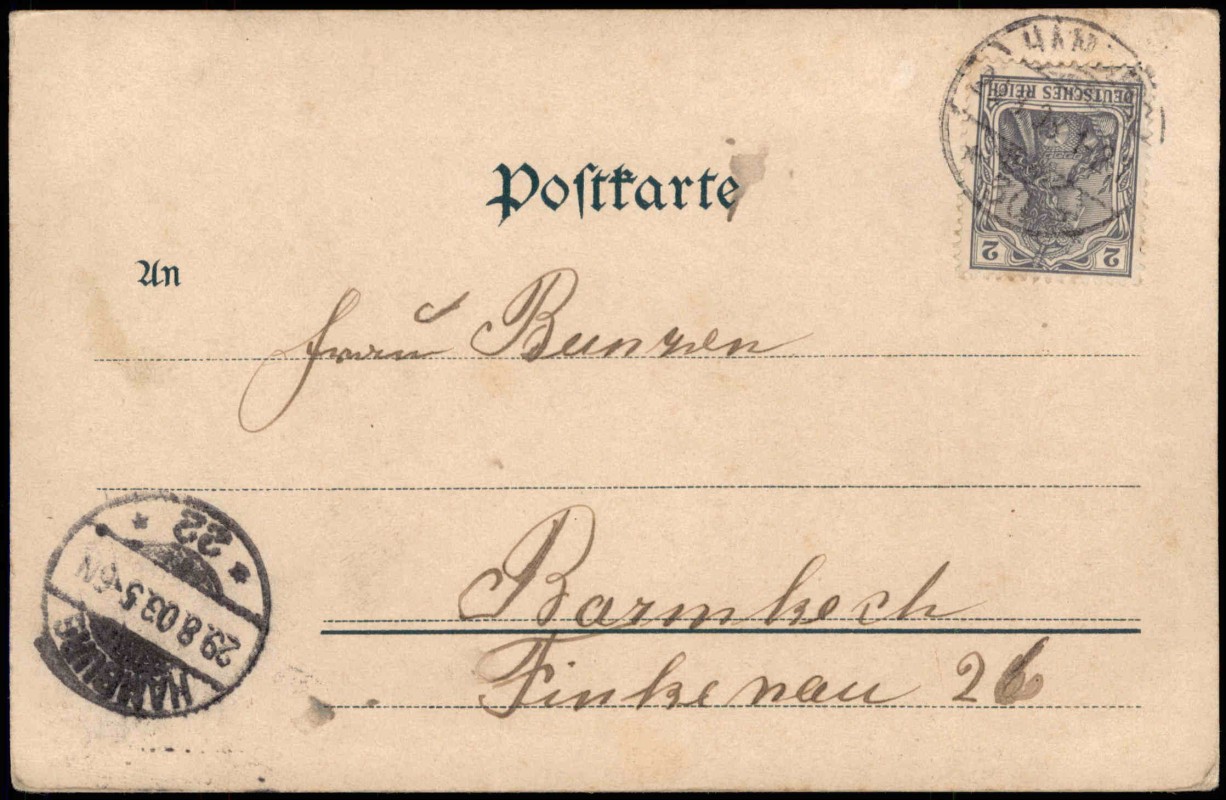 Postkarte
DEUTSCHES REICH
2 2
An
Frau Bunzen
Barmbeck
Finkenau 26
HAMBURG
29.8.03.5-6N
* 22 *